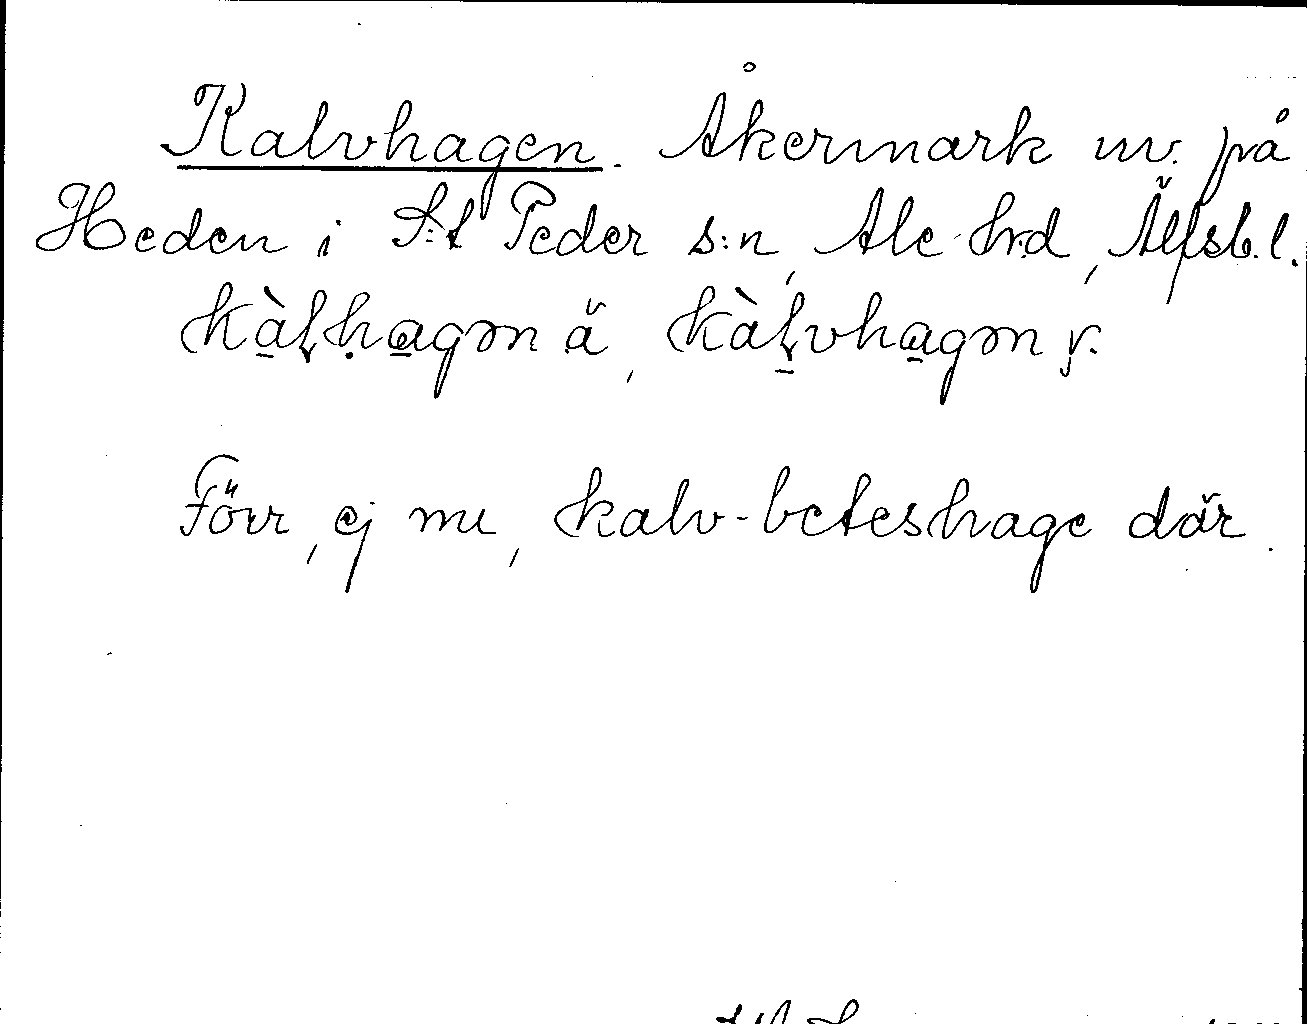 Kalvhagen. Åkermark nv. på
Heden i S:t Peder s:n, Ale hrd, Älfsb. l.
kàḷhagən ä, kàḷvhagən y.
Förr, ej nu, kalv-beteshage där.